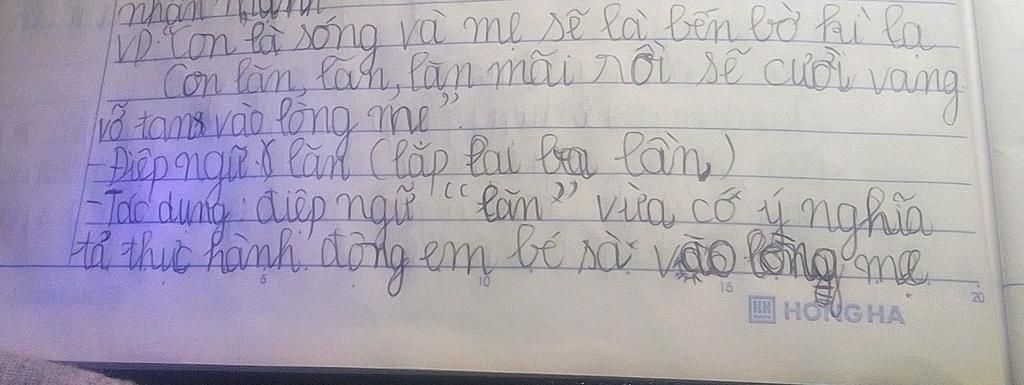 VD: Con là sóng và mẹ sẽ là bến bờ kì lạ
Con lăn, lăn, lăn mãi rồi sẽ cười vang
vỡ tan vào lòng mẹ"
- Điệp ngữ: lăn (lặp lại ba lần)
- Tác dụng: điệp ngữ "lăn" vừa có ý nghĩa
tả thực hành động em bé sà vào lòng mẹ
5 10 15 20
HH HONG HA